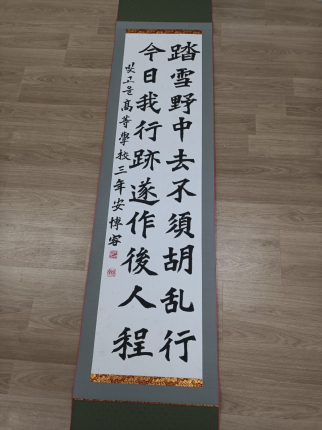 踏雪野中去不須胡乱行
今日我行跡遂作後人程
빛고을高等學校三年安博睿